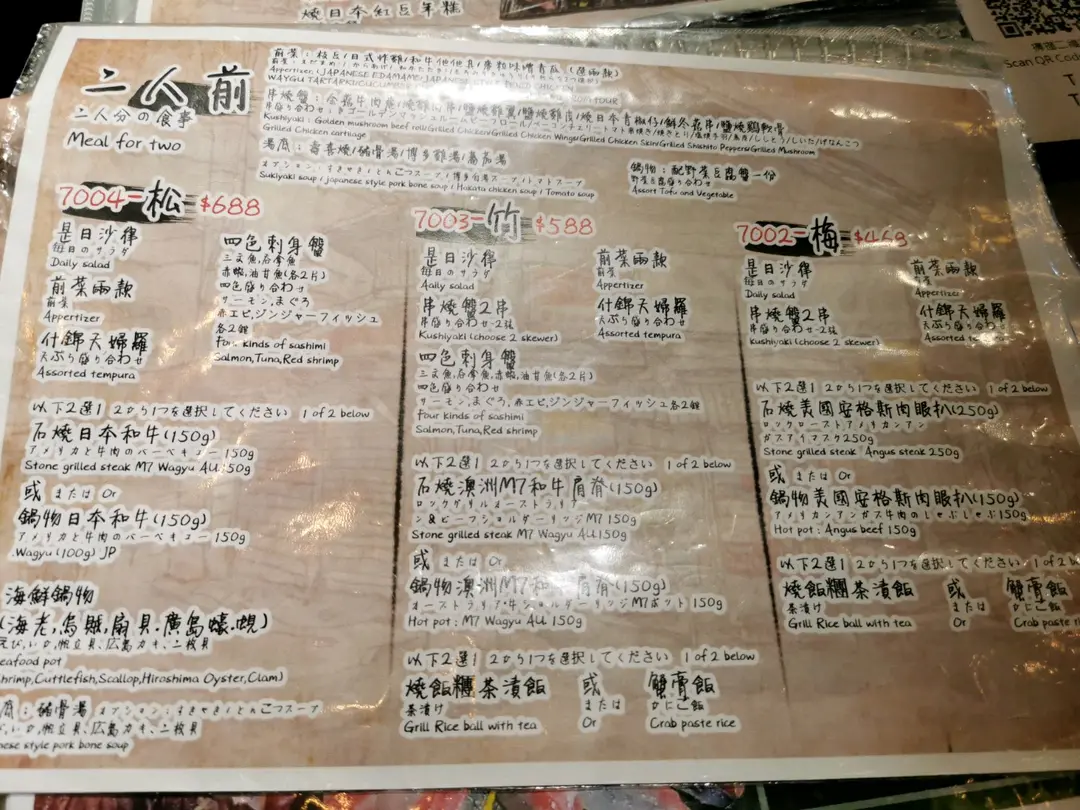 燒日本紅豆年糕
Scan QR Code
二人前
二人分の食事
Meal for two
WAYGU TARTAR
Kushiyaki : Golden mushroom beef roll/Grilled Chicken/Grilled Chicken Wings/Grilled Chicken Skin/Grilled Shishito Peppers/Grilled Mushroom
Grilled Chicken carthage
湯底：壽喜燒/豬骨湯/博多雞湯/蕃茄湯
Sukiyaki soup / Japanese style pork bone soup / Hakata chicken soup / Tomato soup
鍋物：配野菜豆腐盤一份
野菜豆腐盛り合わせ
Assort Tofu and Vegetable
7004-松 $688
是日沙律
毎日のサラダ
Daily salad
前菜兩款
前菜
Appertizer
什錦天婦羅
天ぷら盛り合わせ
Assorted tempura
四色刺身盤
三文魚,吞拿魚
赤蝦,油甘魚(各2片)
四色盛り合わせ
サーモン,まぐろ
赤エビ,ジンジャーフィッシュ
各2種
four kinds of sashimi
Salmon,Tuna,Red shrimp
以下2選1 2から1つを選択してください 1 of 2 below
石燒日本和牛(150g)
アメリカと牛肉のバーベキュー 150g
Stone grilled steak M7 Wagyu AU 150g
或 または Or
鍋物日本和牛(150g)
アメリカと牛肉のバーベキュー 150g
Wagyu (100g) JP
海鮮鍋物
(海老,烏賊,扇貝,廣島蠔,蜆)
えび,いか,帆立貝、広島カキ、二枚貝
eafood pot
hrimp,Cuttlefish,Scallop,Hiroshima Oyster,Clam)
び,いか,帆立貝、広島カキ、二枚貝
nese style pork bone soup
7003-竹 $588
是日沙律
毎日のサラダ
Daily salad
前菜兩款
前菜
Appertizer
串燒盤2串
Kushiyaki (choose 2 skewer)
什錦天婦羅
天ぷら盛り合わせ
Assorted tempura
四色刺身盤
三文魚,吞拿魚,赤蝦,油甘魚(各2片)
四色盛り合わせ
サーモン,まぐろ,赤エビ,ジンジャーフィッシュ各2種
four kinds of sashimi
Salmon,Tuna,Red shrimp
以下2選1 2から1つを選択してください 1 of 2 below
石燒澳洲M7和牛肩脊(150g)
ロックグリルオーストラリア
ン&ビーフショルダーリッジM7 150g
Stone grilled steak M7 Wagyu AU 150g
或 または Or
鍋物澳洲M7和牛肩脊(150g)
M7ポット 150g
Hot pot : M7 Wagyu AU 150g
以下2選1 2から1つを選択してください 1 of 2 below
燒飯糰茶漬飯 或 蟹膏飯
茶漬け または かにこ飯
Grill Rice ball with tea Or Crab paste rice
7002-梅 $469
是日沙律
毎日のサラダ
Daily salad
前菜兩款
前菜
Appertizer
串燒盤2串
Kushiyaki (choose 2 skewer)
什錦天婦羅
天ぷら盛り合わせ
Assorted tempura
以下2選1 2から1つを選択してください 1 of 2 below
石燒美國安格斯肉眼扒(250g)
ロックローストアメリカンアン
ガスアイマスク250g
Stone grilled steak : Angus steak 250g
或 または Or
鍋物美國安格斯肉眼扒(150g)
アメリカンアンガス牛肉のしゃぶしゃぶ150g
Hot pot : Angus beef 150g
以下2選1 2から1つを選択してください 1 of 2 b
燒飯糰茶漬飯 或 蟹膏飯
茶漬け または かにこ飯
Grill Rice ball with tea Or Crab paste ri